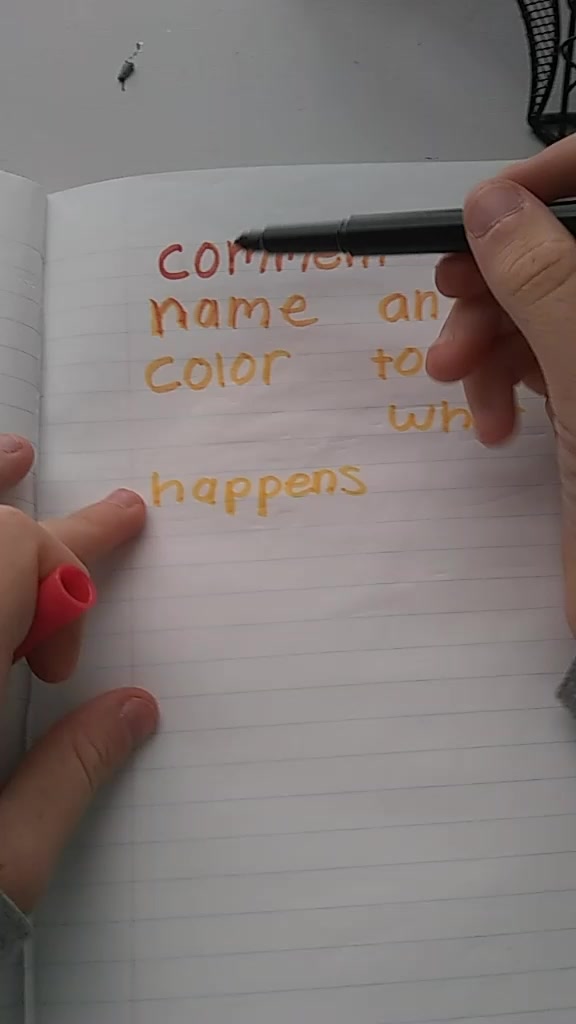 comment
name an
color to
wh
happens